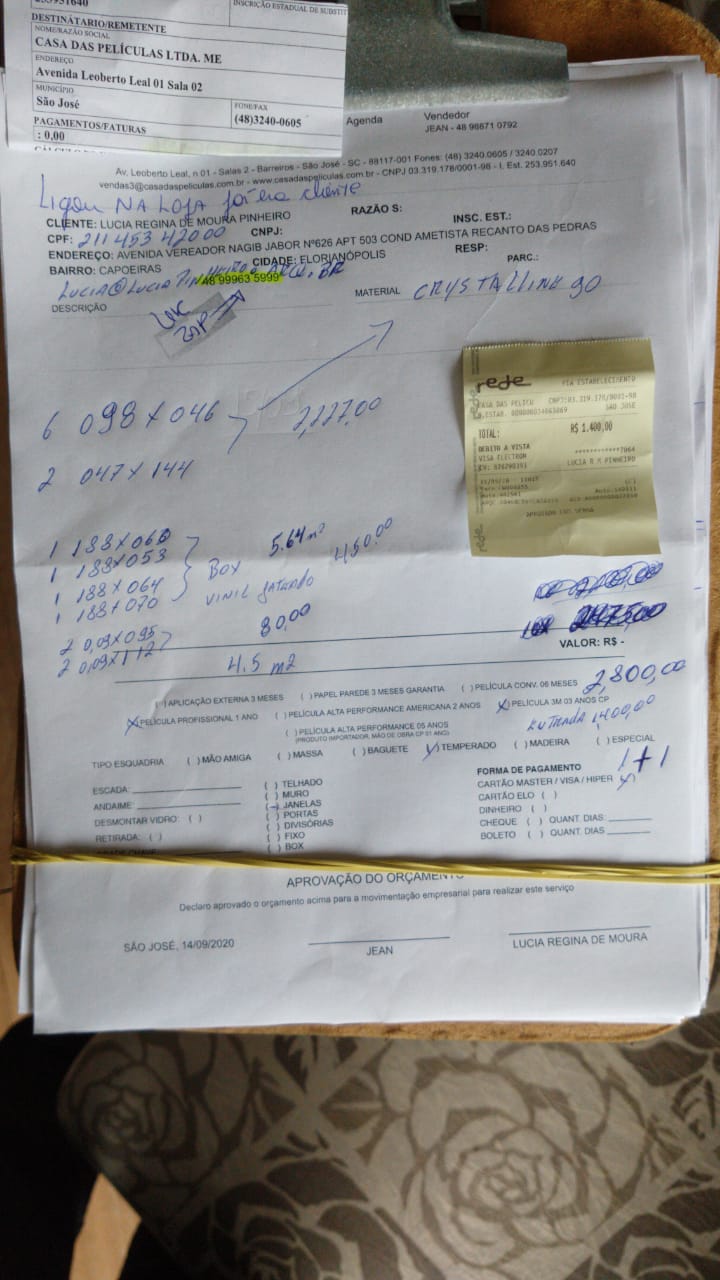 INSCRIÇÃO ESTADUAL DE SUBSTIT
DESTINATÁRIO/REMETENTE
NOME/RAZÃO SOCIAL
CASA DAS PELÍCULAS LTDA. ME
ENDEREÇO
Avenida Leoberto Leal 01 Sala 02
MUNICÍPIO
São José
FONE/FAX
(48)3240-0605
PAGAMENTOS/FATURAS
: 0,00
Agenda
Vendedor
JEAN - 48 98671 0792
Av. Leoberto Leal, n 01 - Salas 2 - Barreiros - São José - SC - 88117-001 Fones: (48) 3240.0605 / 3240.0207
vendas3@casadaspeliculas.com.br - www.casadaspeliculas.com.br - CNPJ 03.319.178/0001-98 - I. Est. 253.951.640
Ligou NA LOJA já era cliente
CLIENTE: LUCIA REGINA DE MOURA PINHEIRO
RAZÃO S:
INSC. EST.:
CPF: 211 453 420 00
CNPJ:
ENDEREÇO: AVENIDA VEREADOR NAGIB JABOR Nº626 APT 503 COND AMETISTA RECANTO DAS PEDRAS
BAIRRO: CAPOEIRAS
CIDADE: FLORIANÓPOLIS
RESP:
PARC.:
48 99963 5999
DESCRIÇÃO
MATERIAL CRYSTALLINE 90
6 098 X 046
2,227,00
2 047 X 144
rede
VIA ESTABELECIMENTO
CASA DAS PELICU CNPJ:03.319.178/0001-98
SAO JOSE
TOTAL: R$ 1.400,00
DEBITO A VISTA
VISA ELECTRON
7064
LUCIA R M PINHEIRO
1 188X060
1 188X053
1 188X064
1 188X070
BOX 5.64 m²
VINIL JATEADO 450.00
2 0,09X095
2 0,09X112
80,00
4.5 m2
VALOR: R$ -
2,800,00
( ) APLICAÇÃO EXTERNA 3 MESES ( ) PAPEL PAREDE 3 MESES GARANTIA ( ) PELÍCULA CONV. 06 MESES
(X) PELÍCULA PROFISSIONAL 1 ANO ( ) PELÍCULA ALTA PERFORMANCE AMERICANA 2 ANOS (X) PELÍCULA 3M 03 ANOS CP
( ) PELÍCULA ALTA PERFORMANCE 05 ANOS
(PRODUTO IMPORTADOR, MÃO DE OBRA CP 01 ANO)
ENTRADA 1400,00
TIPO ESQUADRIA ( ) MÃO AMIGA ( ) MASSA ( ) BAGUETE (√) TEMPERADO ( ) MADEIRA ( ) ESPECIAL
ESCADA:
ANDAIME:
DESMONTAR VIDRO: ( )
RETIRADA: ( )
( ) TELHADO
( ) MURO
( ) JANELAS
( ) PORTAS
( ) DIVISÓRIAS
( ) FIXO
( ) BOX
FORMA DE PAGAMENTO 1+1
CARTÃO MASTER / VISA / HIPER (X)
CARTÃO ELO ( )
DINHEIRO ( )
CHEQUE ( ) QUANT. DIAS:
BOLETO ( ) QUANT. DIAS
APROVAÇÃO DO ORÇAMENTO
Declaro aprovado o orçamento acima para a movimentação empresarial para realizar este serviço
SÃO JOSÉ, 14/09/2020
JEAN
LUCIA REGINA DE MOURA